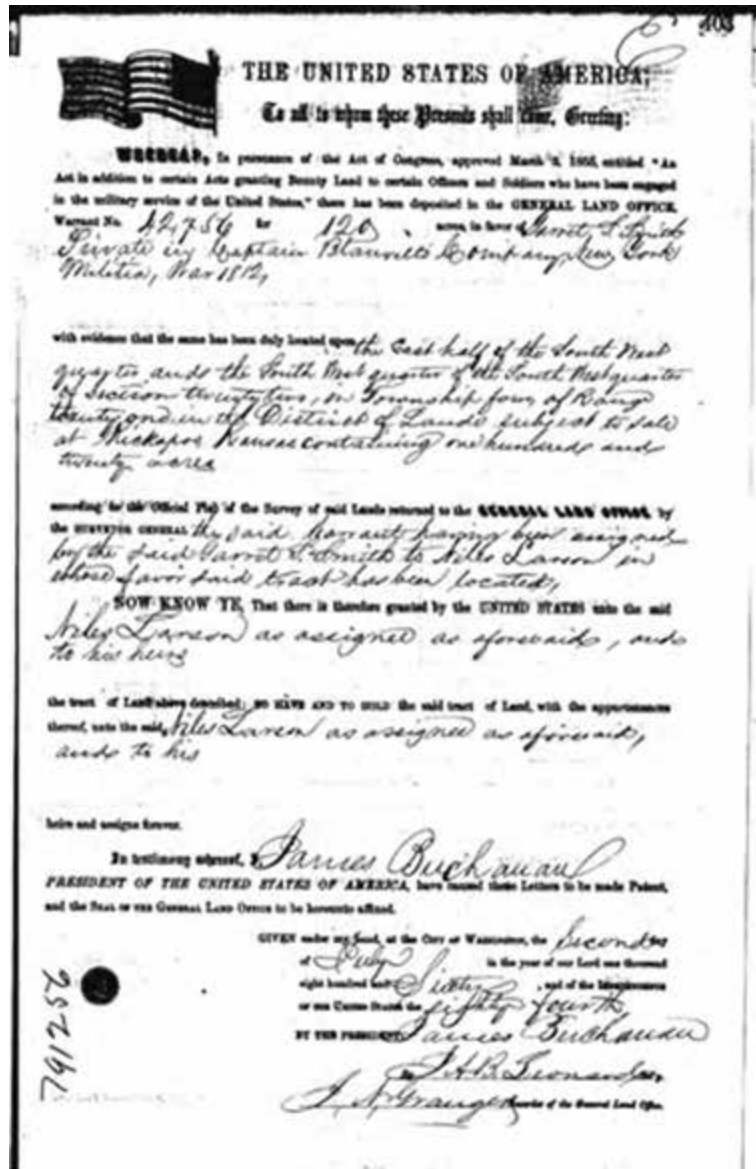 403
THE UNITED STATES OF AMERICA,
To all to whom these Presents shall come, Greeting:
WHEREAS, In pursuance of the Act of Congress, approved March 3, 1855, entitled "An
Act in addition to certain Acts granting Bounty Land to certain Officers and Soldiers who have been engaged
in the military service of the United States," there has been deposited in the GENERAL LAND OFFICE,
Warrant No. 42,756 for 120 acres, in favor of Garret S.
Private in Captain Blauvelts Company, New York
Militia, War 1812,
with evidence that the same has been duly located upon the East half of the South West
quarter and the South West quarter of the South West quarter
of Section twenty two, in Township four, of Range
in the District of Lands subject to sale
at Kickapoo Kansas containing one hundred and
twenty acres
according to the Official Plat of the Survey of said Lands returned to the GENERAL LAND OFFICE by
the SURVEYOR GENERAL the said Warrant having been assigned
by the said Garret S. Smith to Niles Larson in
whose favor said tract has been located,
NOW KNOW YE, That there is therefore granted by the UNITED STATES unto the said
Niles Larson as assignee as aforesaid, and
to his heirs
the tract of Land above described; TO HAVE AND TO HOLD the said tract of Land, with the appurtenances
thereof, unto the said Niles Larson as assignee as aforesaid,
and to his
heirs and assigns forever.
In testimony whereof, I James Buchanan
PRESIDENT OF THE UNITED STATES OF AMERICA, have caused these Letters to be made Patent,
and the SEAL OF THE GENERAL LAND OFFICE to be hereunto affixed.
GIVEN under my hand, at the CITY OF WASHINGTON, the Second day
of July in the year of our Lord one thousand
eight hundred and Sixty, and of the Independence
of the United States the eighty fourth
BY THE PRESIDENT: James Buchanan
By J.A.B. Leonard Sec.
J. N. Granger Recorder of the General Land Office.